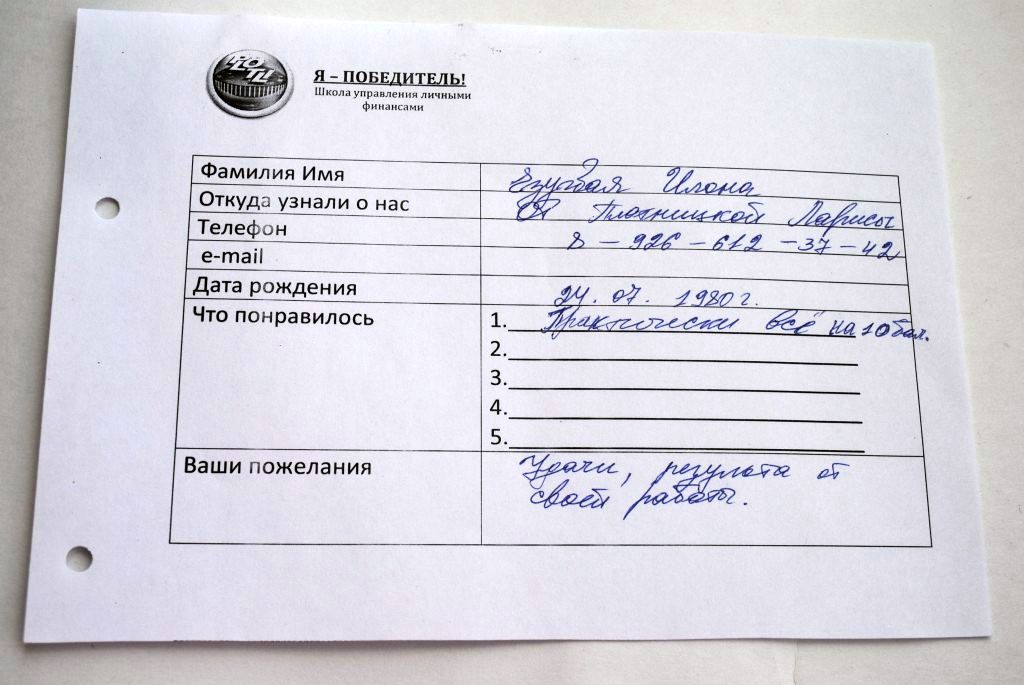 Я – ПОБЕДИТЕЛЬ!
Школа управления личными
финансами
Фамилия Имя Илона
Откуда узнали о нас От Плотницкой Ларисы
Телефон 8 – 926 – 612 – 37 – 42
e-mail
Дата рождения 24. 07. 1980 г.
Что понравилось 1. Практически всё на 10 бал.
2.
3.
4.
5.
Ваши пожелания Удачи, результата от
своей работы.